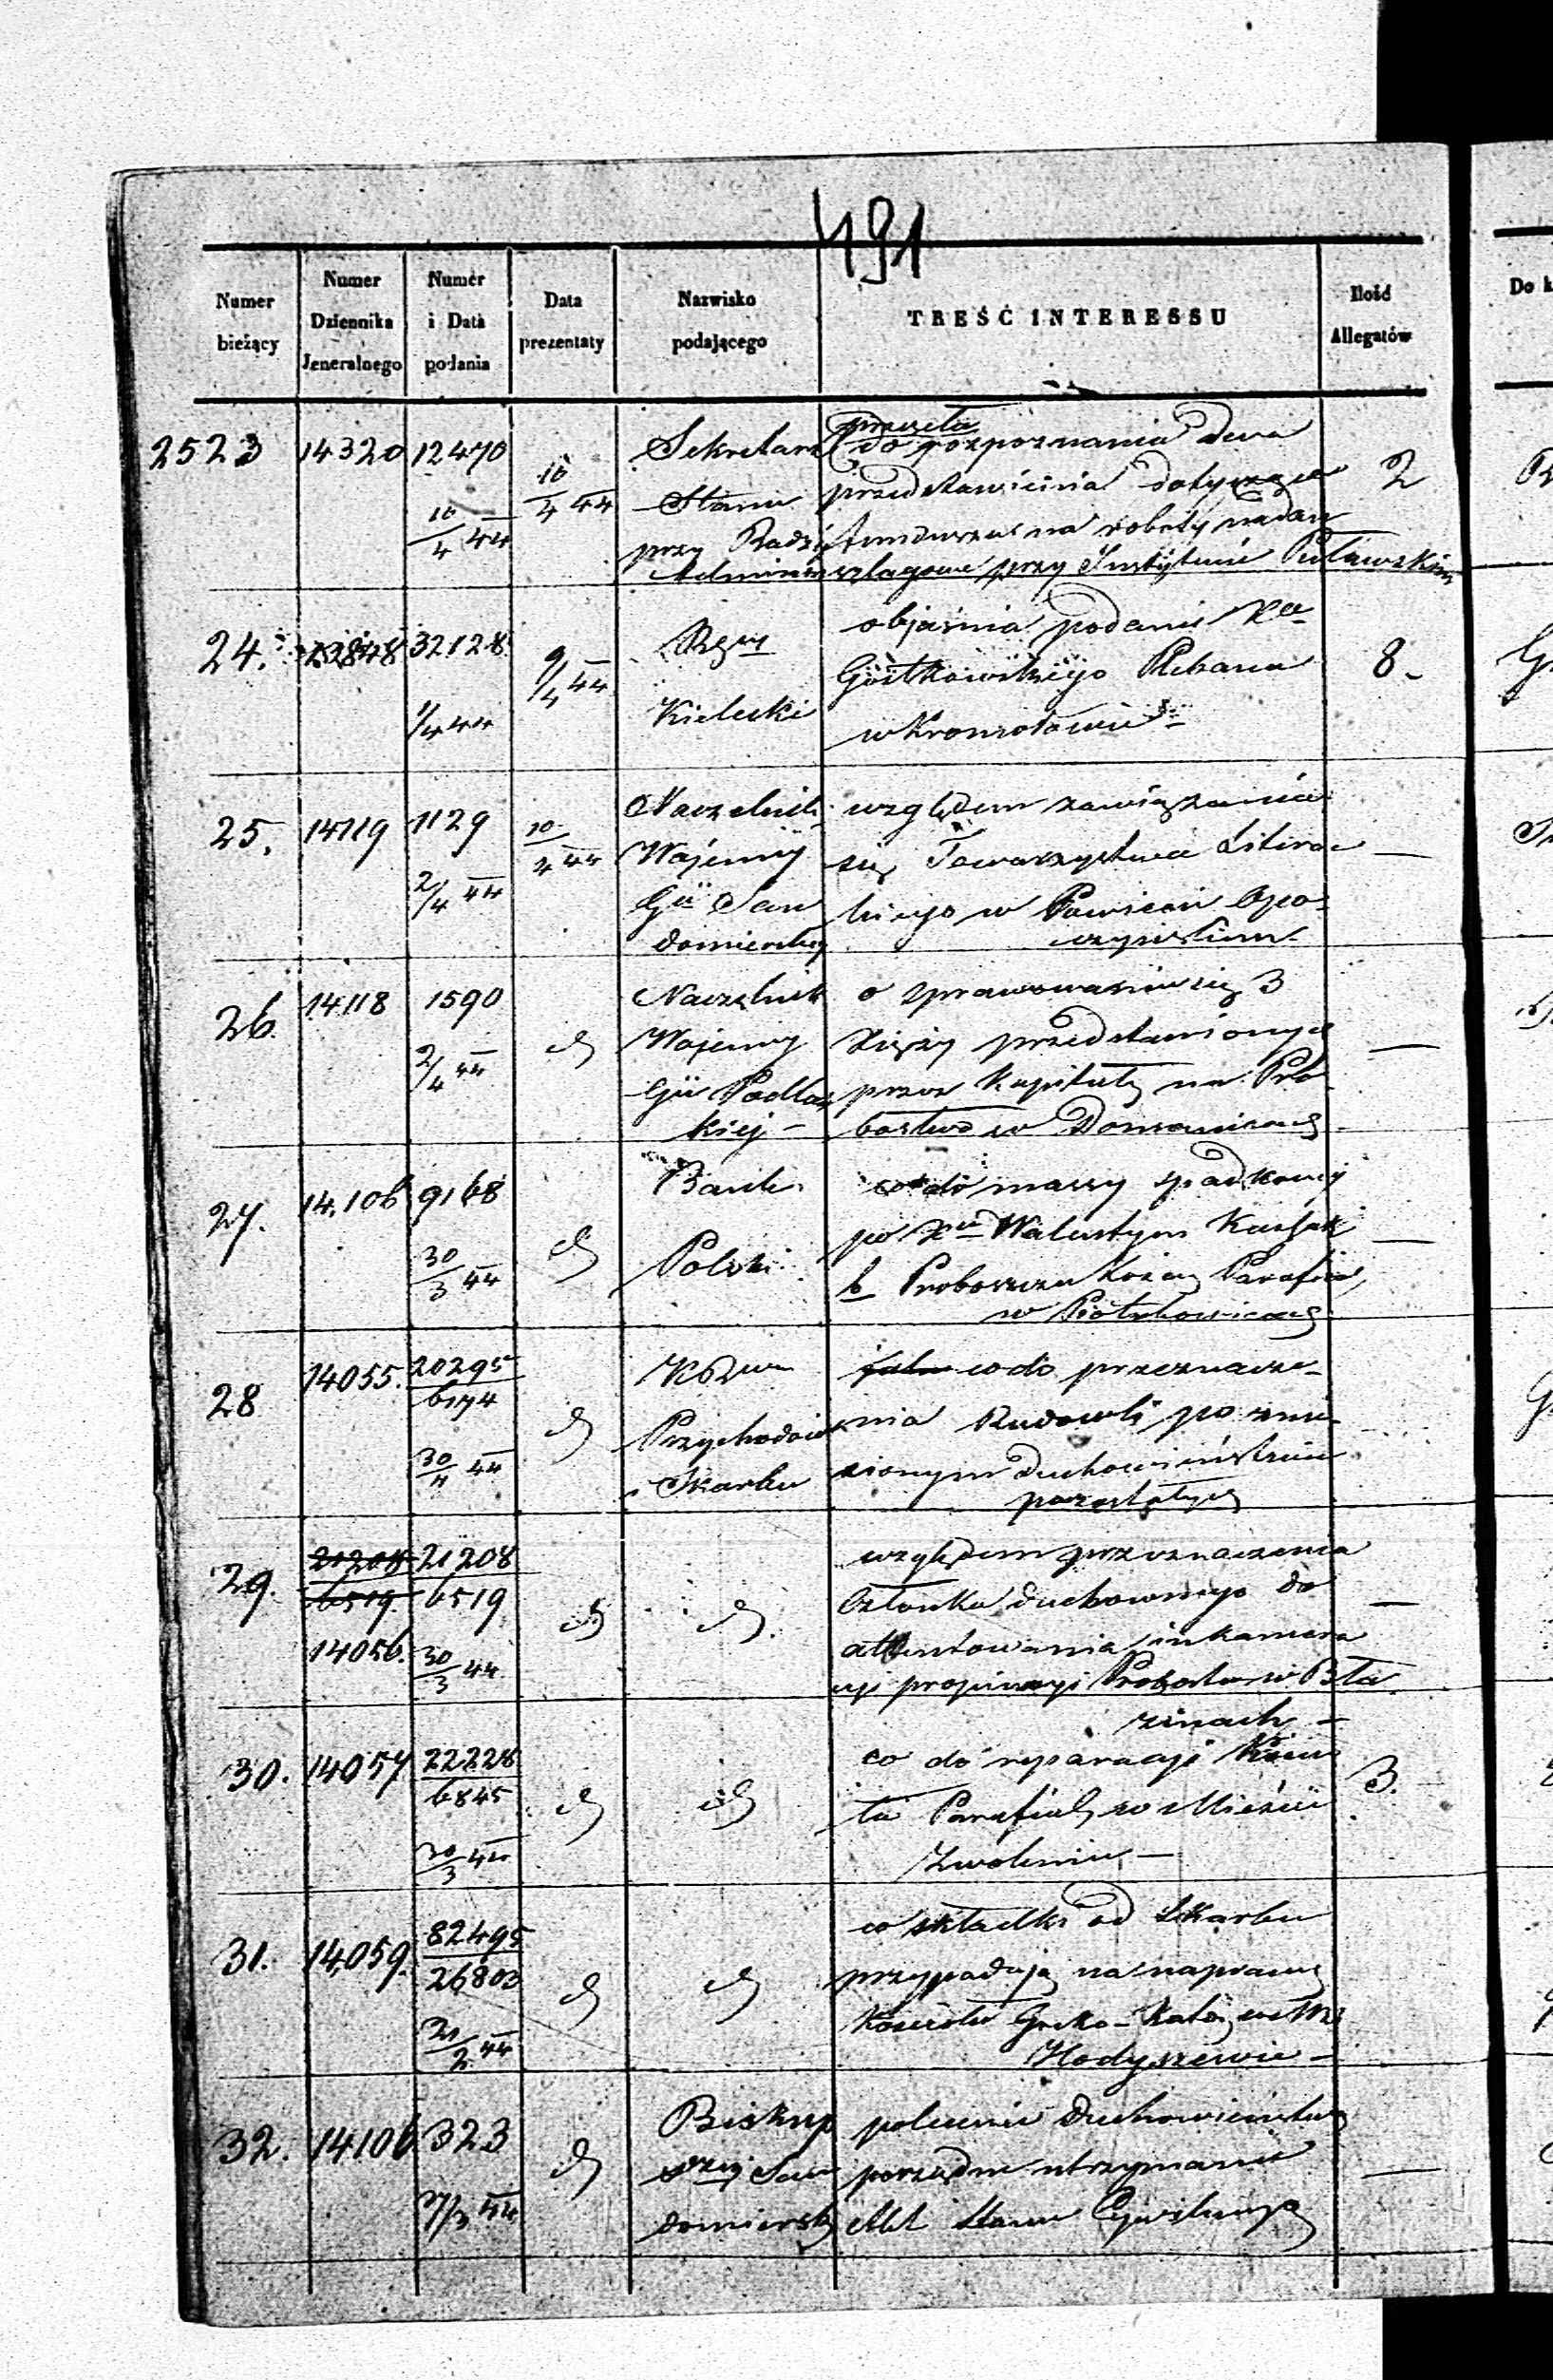 491
Numer bieżący
Numer Dziennika Jeneralnego
Numer i Data podania
Data prezentaty
Nazwisko podającego
TREŚĆ INTERESSU
Ilość Allegatów
Do k
2523 14320 12470 10/4 44 10/4 44 2
Sekretarz
Stanu
przy Radzie
Adminis
przesła
do rozpoznania dwa
przedstawienia dotyczące
funduszu na roboty nadan
szlagowe przy Instytucie Puławskim
24. 13848 32128 1/4 44 9/4 44 8
Kielecki
objaśnia podanie
Gostkowskiego Plebana
w Kromołowie
25. 14119 1129 2/4 44 10/4 44 —
Naczelnik
Wojenny
Gii San
domierskiej
względem zawiązania
się Towarzystwa Litera
ckiego w Powiecie Opo
czyńskim
26. 14118 1590 2/4 44 —
Naczelnik
Wojenny
Gii Podlas
kiej
o sprawowaniu się 3
Xięży przedstawionych
przez Kapitułę na Pro
bostwo w Domanicach
27. 14,106 9168 30/3 44 —
Bank
Polski
co do massy spadkowej
po Walentym
b Proboszczu Parafii
w Piotrkowicach
28 14055. 20295/6174 30/11 44
Przychodów
i Skarbu
co do przeznacze-
nia Budowli po znie
sionym Duchowieństwie
pozostałych
29. 21208/6519 14056. 21208/6519 30/3 44 —
względem przeznaczenia
Członka duchownego do
attentowania inkamera
cyi propinacyi Probostwa w Bła
zinach —
30. 14057 22228/6845 30/3 44 3.
co do reparacyi Kościo
ła Parafial w Mieście
Zwoleniu —
31. 14,059. 82495/26803 21/2 44
co składki od Skarbu
przypadają na naprawę
Kościoła Greko-Katol we Wsi
Hodyszewie —
32. 14106 323 7/3 44 —
Biskup
Dyej San
domierski
polecenie Duchowieństwu
porządne utrzymanie
Akt Stanu Cywilnego